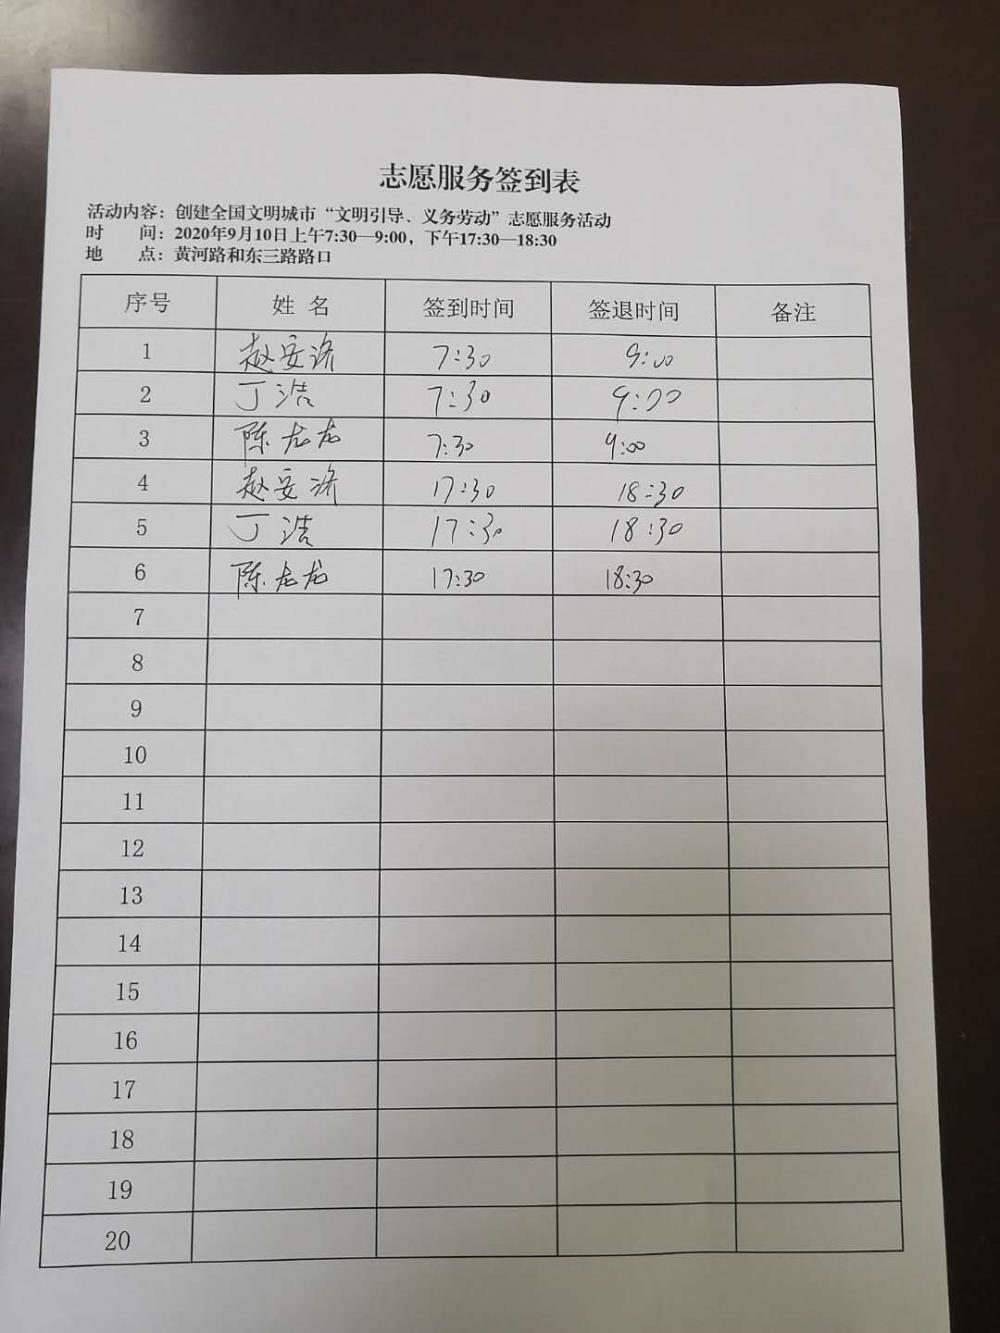 志愿服务签到表
活动内容：创建全国文明城市“文明引导、义务劳动”志愿服务活动
时 间：2020年9月10日上午7:30—9:00，下午17:30—18:30
地 点：黄河路和东三路路口
序号 姓 名 签到时间 签退时间 备注
1 赵安 7:30 9:00
2 丁浩 7:30 9:00
3 陈龙龙 7:30 9:00
4 赵安 17:30 18:30
5 丁浩 17:30 18:30
6 陈龙龙 17:30 18:30
7
8
9
10
11
12
13
14
15
16
17
18
19
20